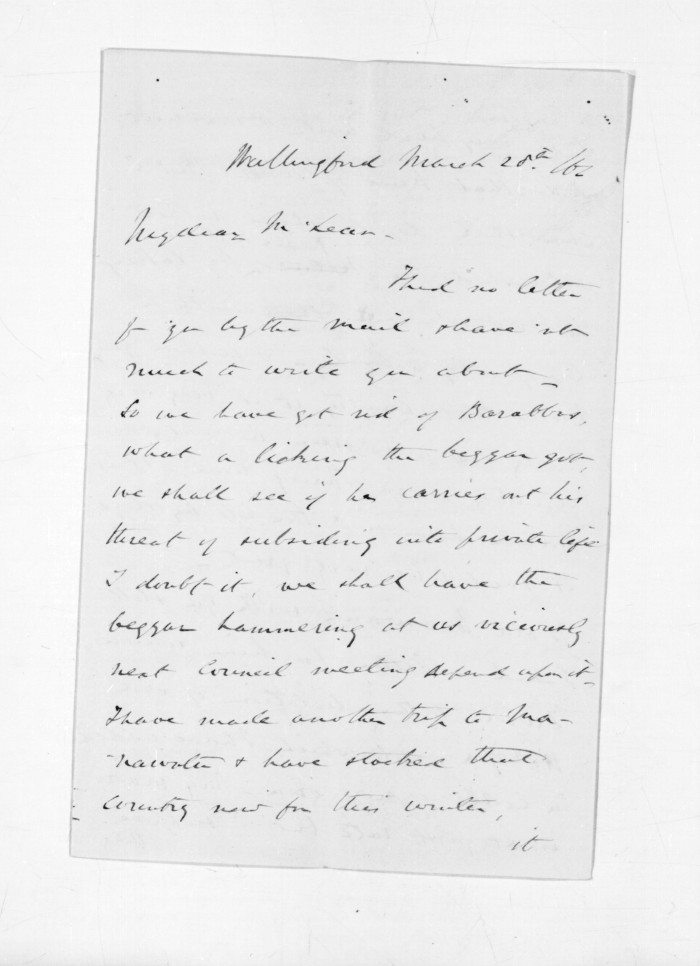 Wallingford March 28th /62
My dear McLean -
I had no letter
fr you by the mail & have not
much to write you about -
So we have got rid of Barabbas,
what a licking the beggar got,
we shall see if he carries out his
threat of subsiding into private life
I doubt it, we shall have the
beggar hammering at us viciously
next Council meeting depend upon it -
I have made another trip to Ma-
-nawatu & have stocked that
country now for this winter,
it